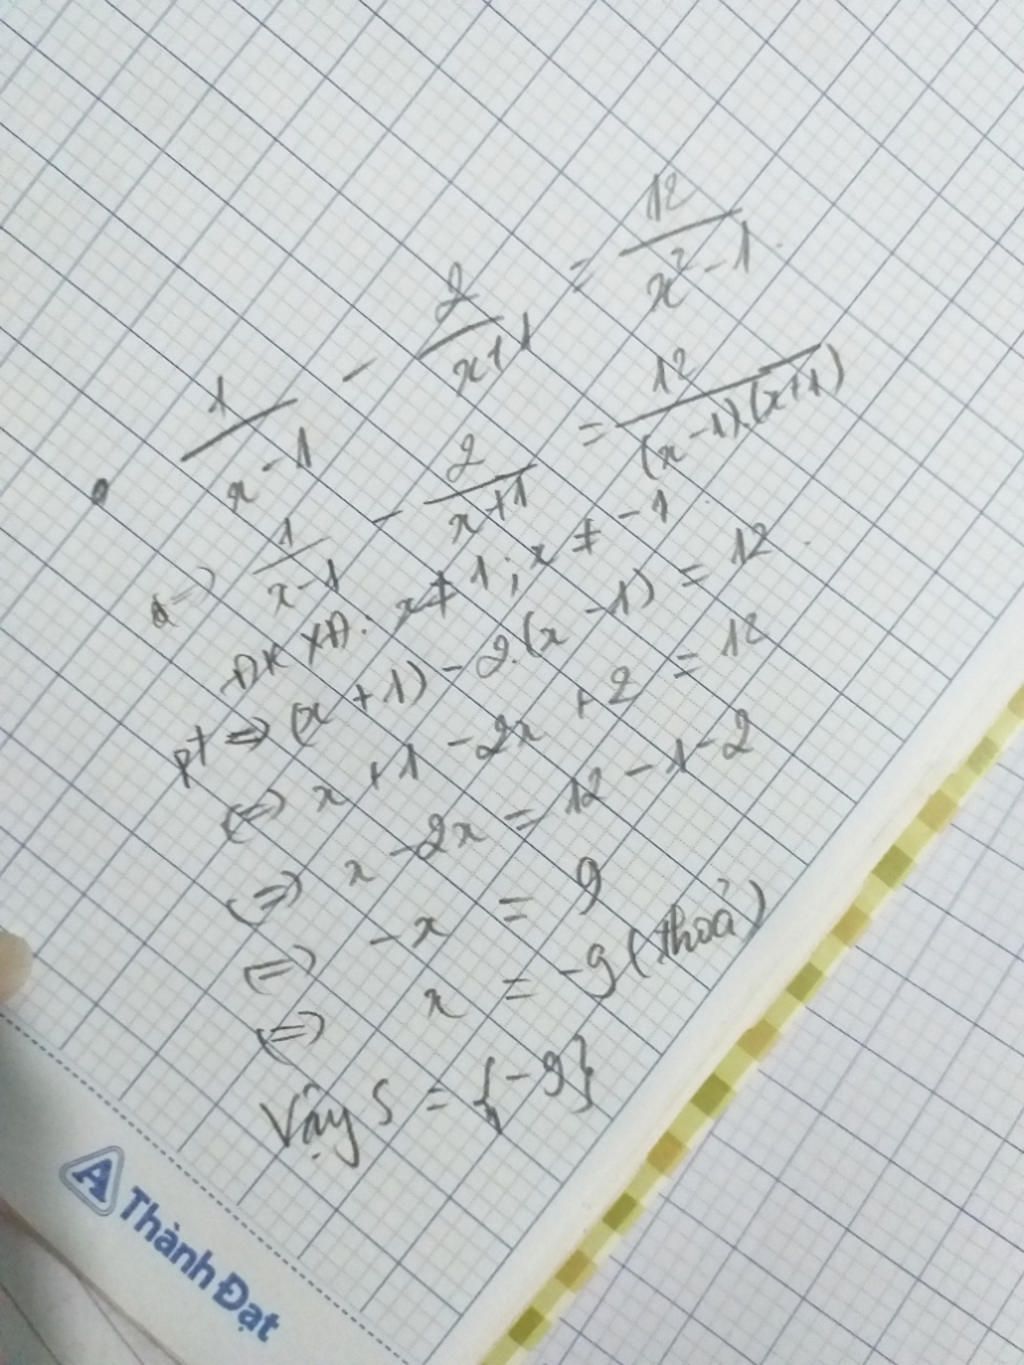 1/(x-1) - 2/(x+1) = 12/(x²-1)
=> 1/(x-1) - 2/(x+1) = 12/((x-1).(x+1))
ĐKXĐ: x ≠ 1; x ≠ -1
pt => (x+1) - 2.(x-1) = 12
(=) x + 1 - 2x + 2 = 12
(=) x - 2x = 12 - 1 - 2
(=) -x = 9
(=) x = -9 (thoả)
Vậy S = {-9}
Thành Đạt